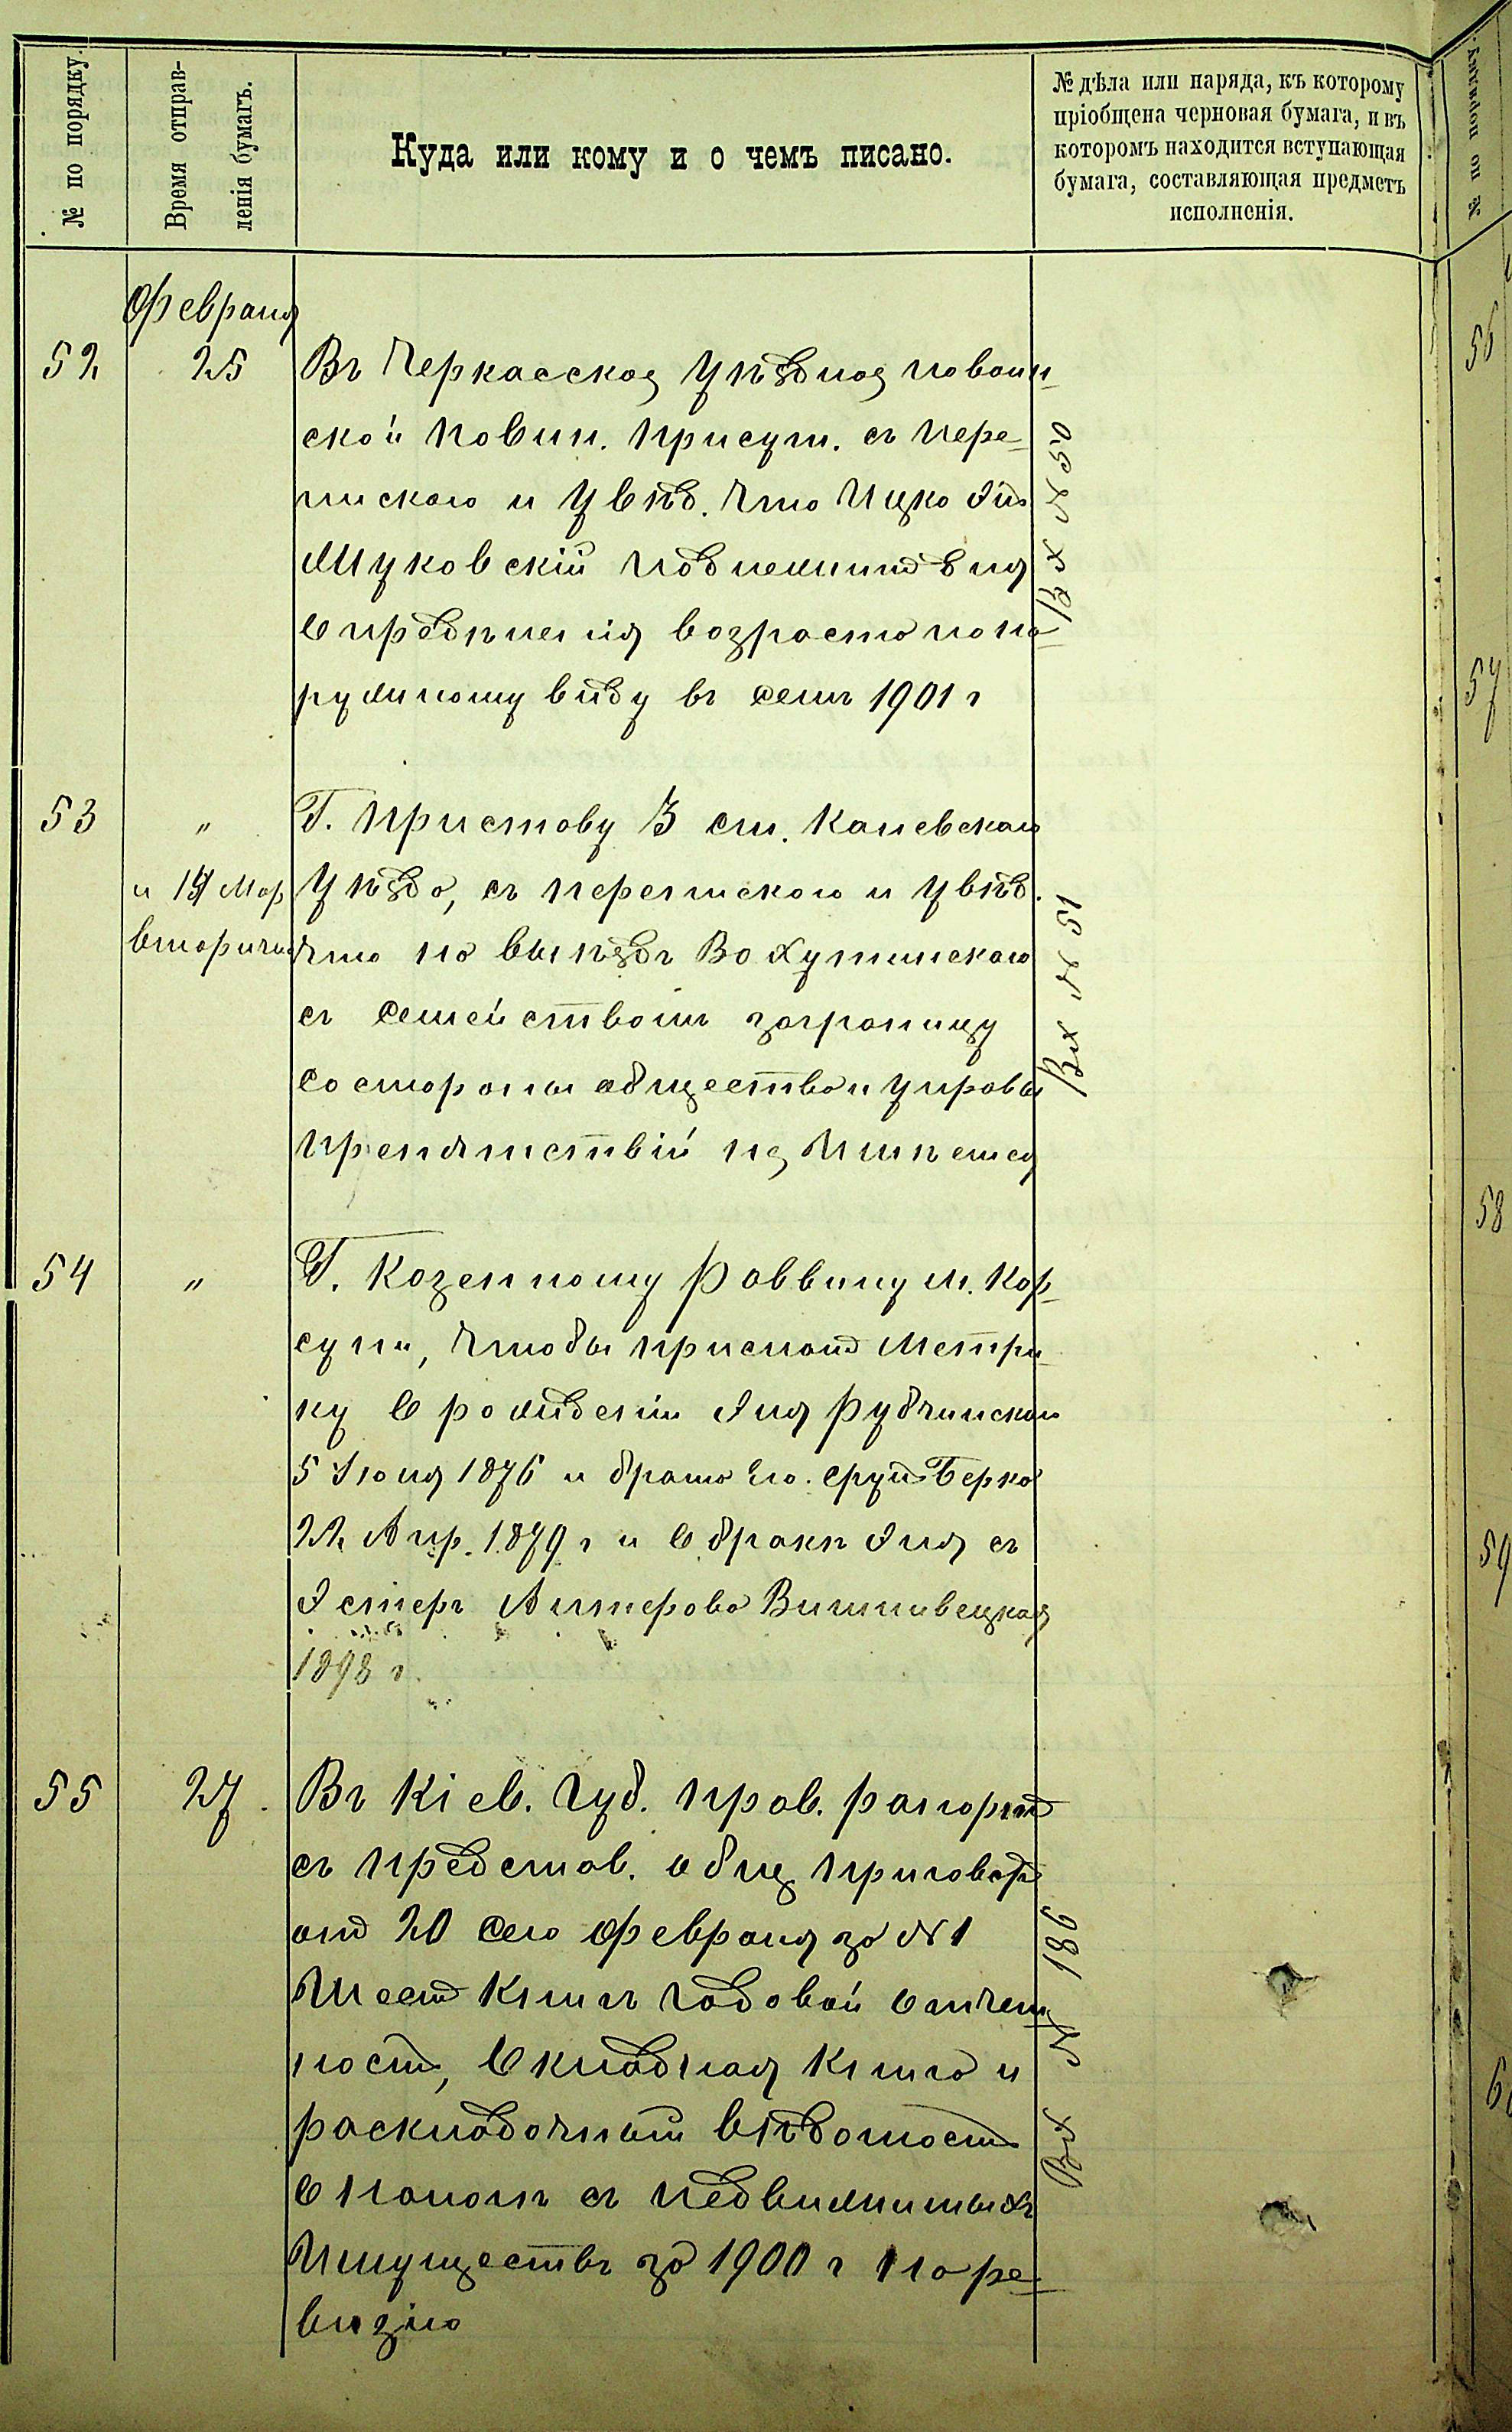 № по порядку.
Время отправ-
ленія бумагъ.
Куда или кому и о чемъ писано.
№ дѣла или наряда, къ которому
пріобщена черновая бумага, и въ
которомъ находится вступающая
бумага, составляющая предметъ
исполненія.
№ по порядку.
Февраля
52 25 Въ Черкасское Уѣздное по воин-
ской повин. присут. съ пере-
пискою и увѣд. что Ицко
Жуковскій подлежитъ для
опредѣленія возраста по на-
ружному виду въ семъ 1901 г
Вх № 50
53 " Г. Приставу 3 ст. Каневскаго
и 14 Мар Уѣзда, съ перепискою и увѣд.
вторично что на выѣздъ
съ семействомъ заграницу
со стороны общества и управы
препятствій не имѣется
Вх № 51
54 " Г. Казенному Раввину м. Кор-
суни, чтобы прислать метри-
ку о рожденіи Эля Рубчинскаго
5 Іюня 1876 и брата его Сруль Берко
22 Апр. 1879 г и о бракѣ Эля съ
Эстеръ Алтерова Вишнивецкая
1898 г.
55 27 Въ Кіев. Губ. Прав. рапортъ
съ представ. общ приговора
отъ 20 сего Февраля за № 1
Шесть Книгъ годовой отчет
ность, окладная книга и
раскладочный вѣдомость
о налогѣ съ недвижимыхъ
Имуществъ за 1900 г на ре-
визію
Вх № 186
56
57
58
59